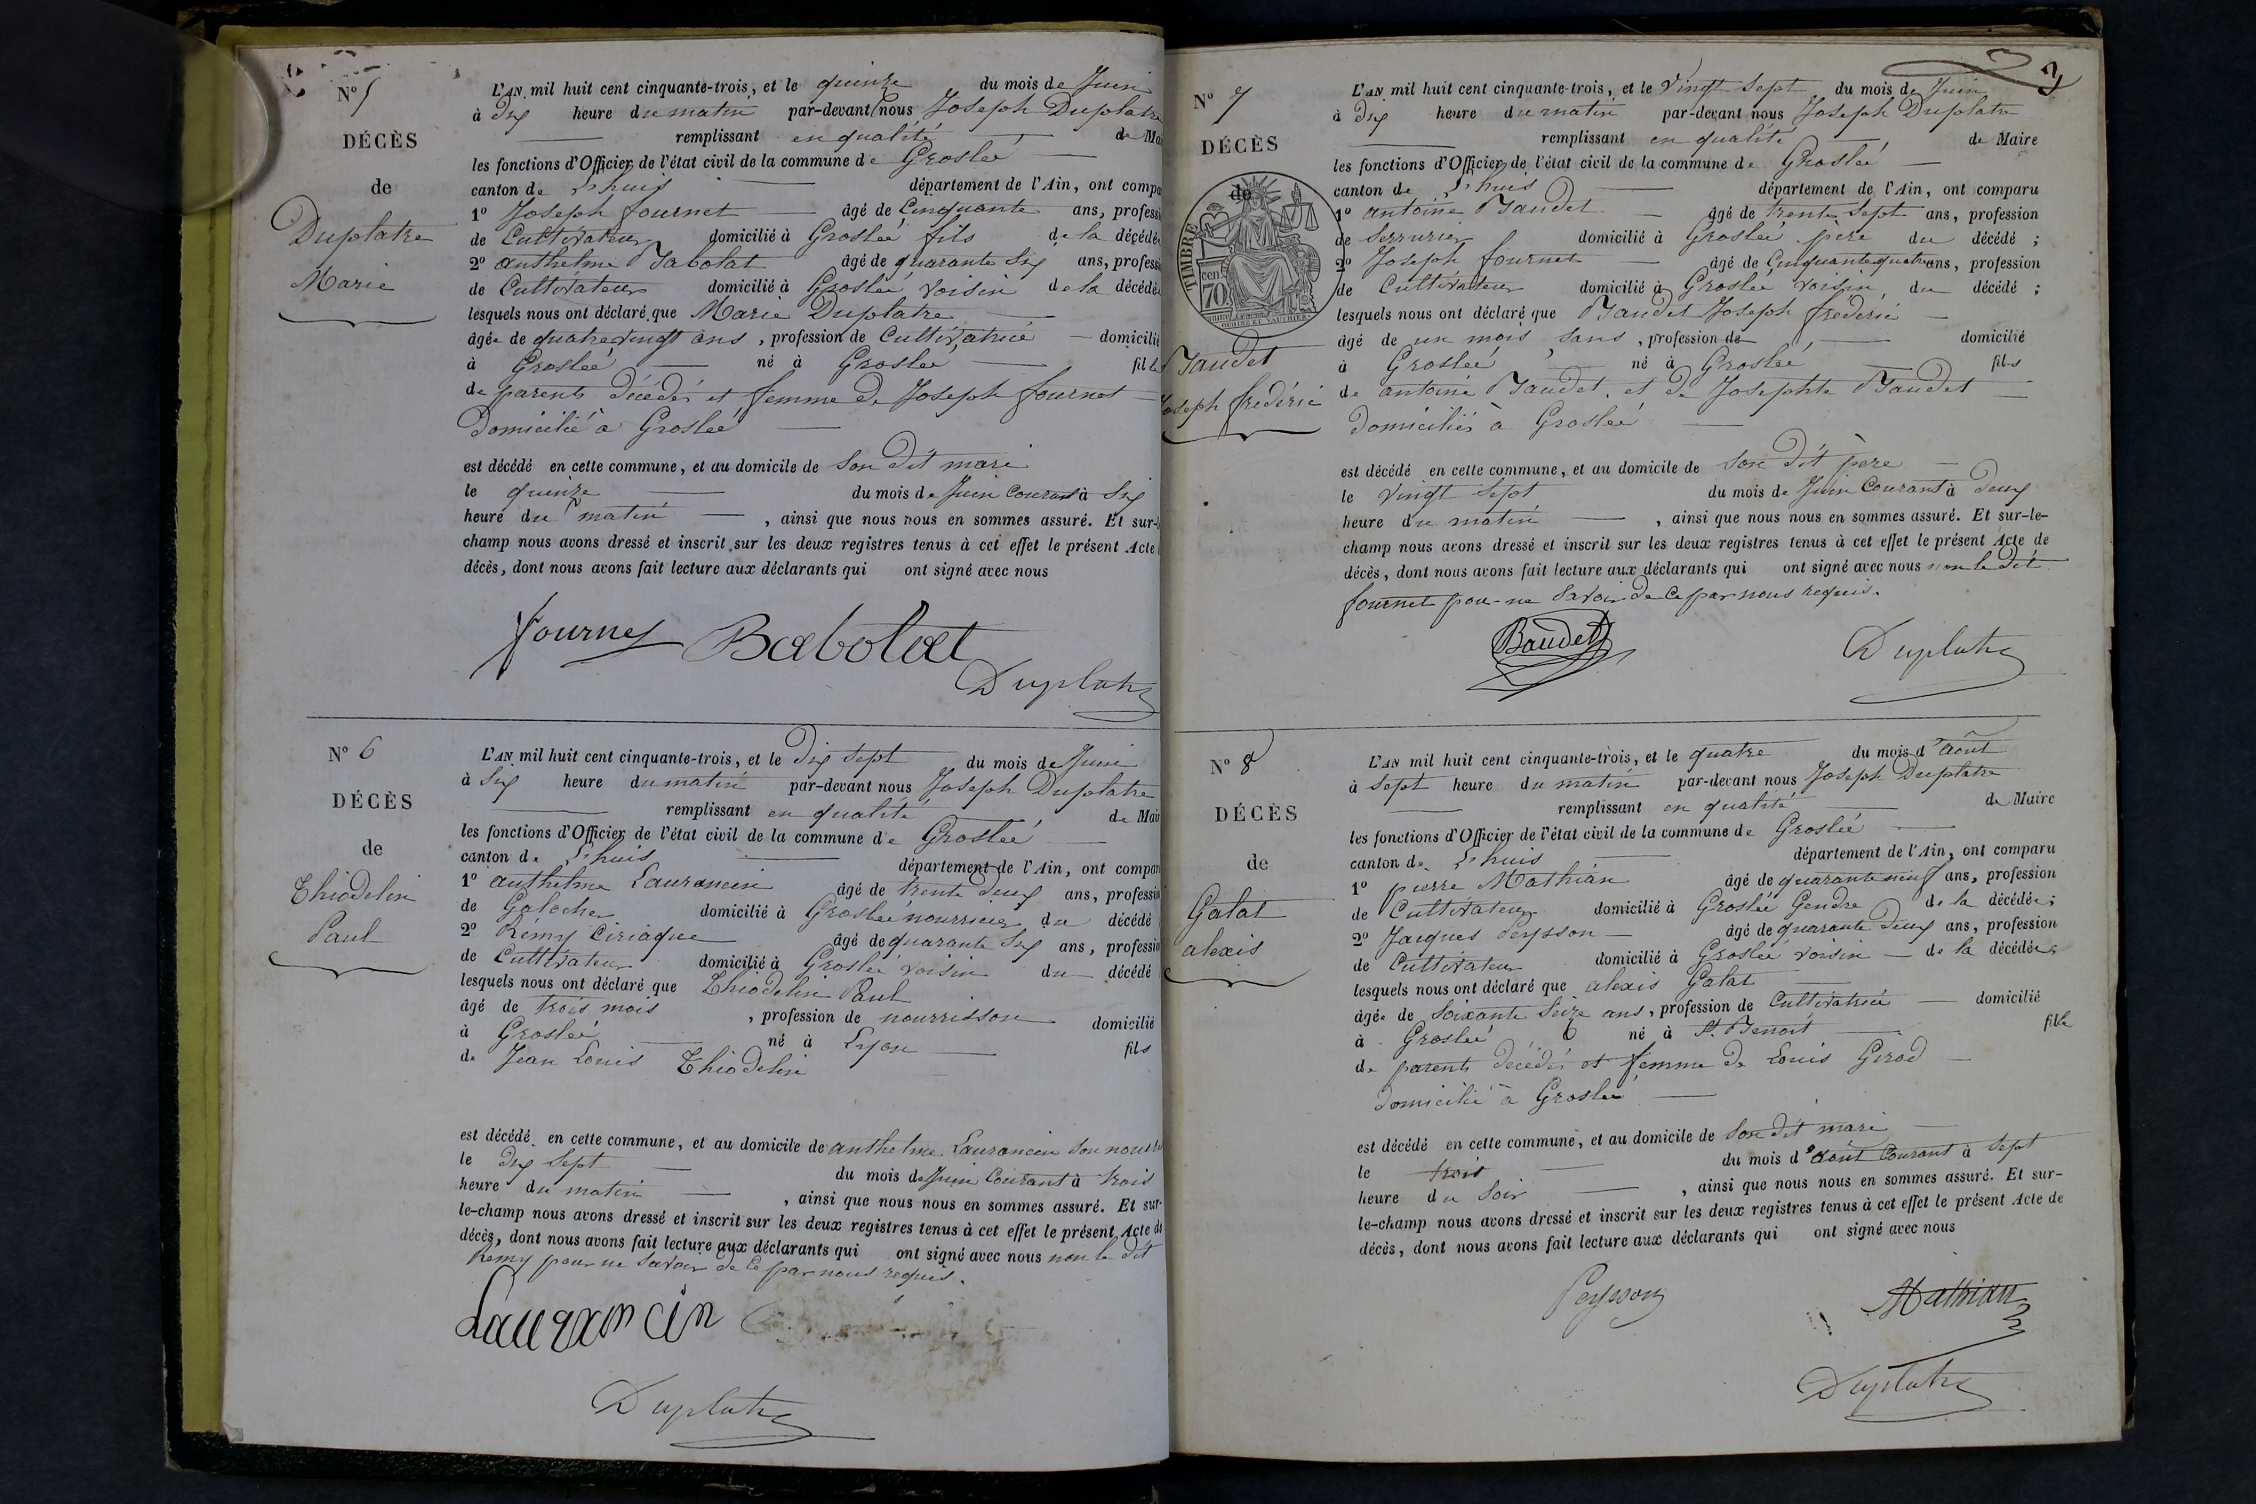 Nº 5
DÉCÈS
de
Duplatre
Marie
L'AN mil huit cent cinquante-trois, et le quinze du mois de Juin
à dix heure du matin par-devant nous Joseph Duplatre
remplissant en qualité de Mai
les fonctions d'Officier de l'état civil de la commune de Groslée
canton de Lhuis département de l'Ain, ont compa
1º Joseph fournet âgé de Cinquante ans, professi
de Cultivateur domicilié à Groslée fils de la décédée
2º anthelme Babolat âgé de quarante six ans, professi
de Cultivateur domicilié à Groslée voisin de la décédée
lesquels nous ont déclaré que Marie Duplatre
âgée de quatrevingt ans, profession de Cultivatrice domicilié
à Groslée né à Groslée fille
de parents décédés et femme de Joseph fournet
domicilié à Groslée
est décédé en cette commune, et au domicile de son dit mari
le quinze du mois de Juin Courant à six
heure du matin, ainsi que nous nous en sommes assuré. Et sur-l
champ nous avons dressé et inscrit sur les deux registres tenus à cet effet le présent Acte
décès, dont nous avons fait lecture aux déclarants qui ont signé avec nous
fournet Babolat
Duplatre
Nº 6
DÉCÈS
de
Thiodelin
Paul
L'AN mil huit cent cinquante-trois, et le dix sept du mois de Juin
à six heure du matin par-devant nous Joseph Duplatre
remplissant en qualité de Mair
les fonctions d'Officier de l'état civil de la commune de Groslée
canton de Lhuis département de l'Ain, ont compar
1º anthelme Laurancin âgé de trente deux ans, profession
de Galocher domicilié à Groslée nourricier du décédé
2º Remy Ciriaque âgé de quarante six ans, professio
de Cultivateur domicilié à Groslée voisin du décédé
lesquels nous ont déclaré que Thiodelin Paul
âgé de trois mois, profession de nourrisson domicilié
à Groslée né à Lyon fils
de Jean Louis Thiodelin
est décédé en cette commune, et au domicile de anthelme Laurancin son
le dix sept du mois de Juin Courant à trois
heure du matin, ainsi que nous nous en sommes assuré. Et sur-
le-champ nous avons dressé et inscrit sur les deux registres tenus à cet effet le présent Acte de
décès, dont nous avons fait lecture aux déclarants qui ont signé avec nous non le dit
Remy pour ne savoir de ce par nous requis.
Laurancin
Duplatre
3
Nº 7
DÉCÈS
de
TIMBRE
cen
70
Baudet
Joseph frédéric
L'AN mil huit cent cinquante-trois, et le vingt sept du mois de Juin
à dix heure du matin par-devant nous Joseph Duplatre
remplissant en qualité de Maire
les fonctions d'Officier de l'état civil de la commune de Groslée
canton de Lhuis département de l'Ain, ont comparu
1º antoine Baudet âgé de trente sept ans, profession
de Serrurier domicilié à Groslée père du décédé ;
2º Joseph fournet âgé de Cinquante quatre ans, profession
de Cultivateur domicilié à Groslée voisin du décédé ;
lesquels nous ont déclaré que Baudet Joseph frédéric
âgé de un mois, sans, profession de domicilié
à Groslée né à Groslée fils
de antoine Baudet et de Josephte Baudet
domiciliés à Groslée
est décédé en cette commune, et au domicile de son dit père
le vingt sept du mois de Juin Courant à deux
heure du matin, ainsi que nous nous en sommes assuré. Et sur-le-
champ nous avons dressé et inscrit sur les deux registres tenus à cet effet le présent Acte de
décès, dont nous avons fait lecture aux déclarants qui ont signé avec nous non le dit
fournet pour ne savoir de ce par nous requis.
Baudet Duplatre
Nº 8
DÉCÈS
de
Galat
alexis
L'AN mil huit cent cinquante-trois, et le quatre du mois d'août
à sept heure du matin par-devant nous Joseph Duplatre
remplissant en qualité de Maire
les fonctions d'Officier de l'état civil de la commune de Groslée
canton de Lhuis département de l'Ain, ont comparu
1º pierre Mathian âgé de quarante neuf ans, profession
de Cultivateur domicilié à Groslée Gendre de la décédée ;
2º Jacques Peysson âgé de quarante deux ans, profession
de Cultivateur domicilié à Groslée voisin de la décédée ;
lesquels nous ont déclaré que alexis Galat
âgée de soixante seize ans, profession de Cultivatrice domicilié
à Groslée né à St. Benoit fille
de parents décédés et femme de Louis Girod
domicilié à Groslée
est décédé en cette commune, et au domicile de son dit mari
le trois du mois d'août Courant à sept
heure du soir, ainsi que nous nous en sommes assuré. Et sur-
le-champ nous avons dressé et inscrit sur les deux registres tenus à cet effet le présent Acte de
décès, dont nous avons fait lecture aux déclarants qui ont signé avec nous
Peysson Mathian
Duplatre